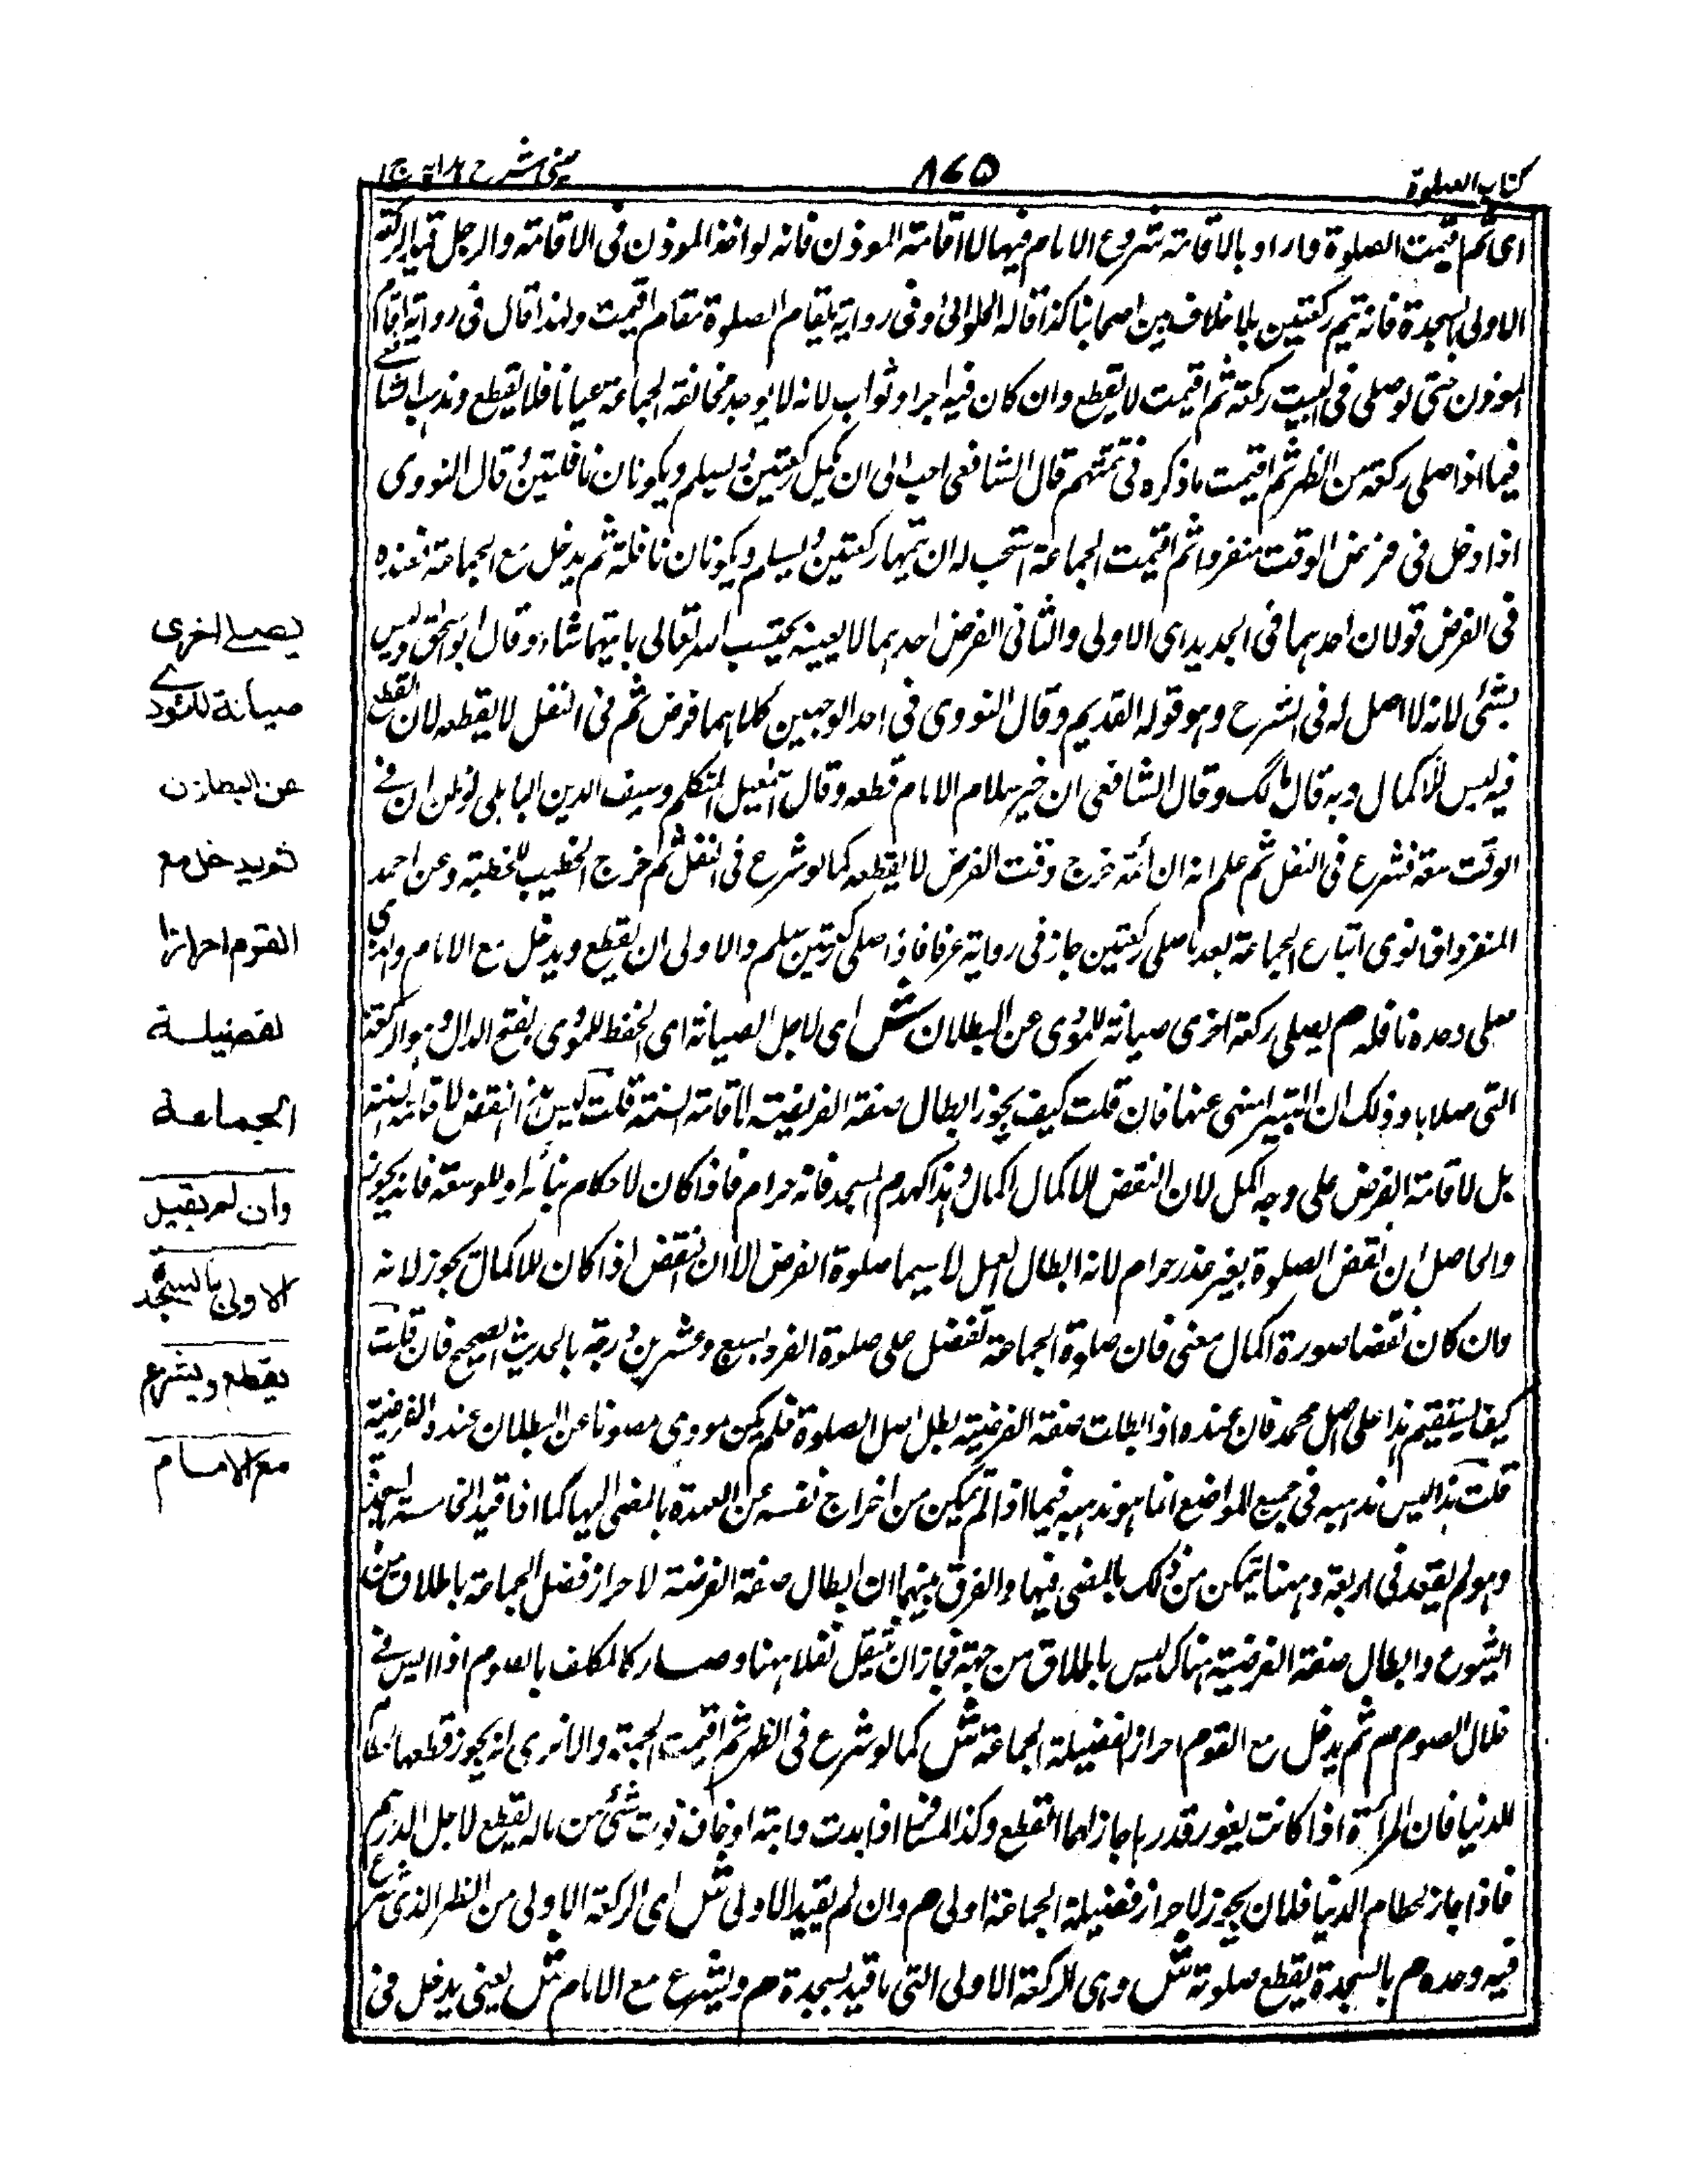 كتاب الصلوة
٨٤٥
عينى شرح هداية ج ١
اى ثم اقيمت الصلوة واراد بالاقامة شروع الامام فيها لا اقامة الموذن فانه لو اخذ الموذن فى الاقامة والرجل لم يقيد الركعة
الاولى بالسجدة فانه يتم ركعتين بلا خلاف بين اصحابنا كذا قاله الحلوانى وفى رواية يقام الصلوة مقام اقيمت ولهذا قال فى رواية اقام
الموذن حتى لو صلى فى البيت ركعة ثم اقيمت لا يقطع وان كان فيه اجرا وثواب لانه لا يوجد مخالفة الجماعة عيانا فلا يقطع ومذهب الشافعى
فيما اذا صلى ركعة من الظهر ثم اقيمت ما ذكره فى تتمتهم قال الشافعى احب الى ان يكمل ركعتين ويسلم ويكونان نافلتين وقال النووى
اذا دخل فى فرض الوقت منفردا ثم اقيمت الجماعة استحب له ان يتمها ركعتين ويسلم ويكونان نافلة ثم يدخل مع الجماعة فعنده
فى الفرض قولان احدهما فى الجديد اى الاولى والثانى الفرض احدهما لا بعينه يحتسب الله تعالى بايتهما شاء وقال ابو اسحق وليس
بشئ لانه لا اصل له فى الشرح وهو قوله القديم وقال النووى فى احد الوجهين كلاهما فرض ثم فى النفل لا يقطعه لان القطع
فيه ليس للاكمال وبه قال مالك وقال الشافعى ان خير سلام الامام قطعه وقال اسمعيل المتكلم وسيف الدين البابلى لو ظن ان فى
الوقت سعة فشرع فى النفل ثم علم انه ان ائمه خرج وقت الفرض لا يقطعه كما لو شرع فى النفل ثم اخرج الخطيب للخطبة وعن احمد
المنفرد اذا نوى اتباع الجماعة بعد ما صلى ركعتين جاز فى رواية عرفا فاذا صلى ركعتين سلم والاولى ان يقطع ويدخل مع الامام والذى
صلى وحده نافله م يصلى ركعة اخرى صيانة للمؤدى عن البطلان ش اى لاجل الصيانة اى الحفظ للمؤدى بفتح الدال وهو الركعة
التى صلاها وذلك ان البتيراء منهى عنها فان قلت كيف يجوز ابطال صفة الفريضة لاقامة السنة قلت ليس النقض لاقامة السنة
بل لاقامة الفرض على وجه اكمل لان النقض للاكمال اكمال وهذا كهدم المسجد فانه حرام فاذا كان لاحكام بنائه او للوسعة فانه يجوز
والحاصل ان نقض الصلوة بغير عذر حرام لانه ابطال العمل لا سيما صلوة الفرض الا ان النقض اذا كان للاكمال يجوز لانه
وان كان نقضا صورة اكمال معنى فان صلوة الجماعة تفضل على صلوة الفرد بسبع وعشرين درجة بالحديث الصحيح فان قلت
كيف يستقيم هذا على اصل محمد فان عنده اذا بطلت صفة الفرضية بطل اصل الصلوة فلم يكن مودى مصونا عن البطلان عنده والفرضية
قلت هذا ليس مذهبه فى جميع المواضع انما هو مذهبه فيما اذا لم يتمكن من اخراج نفسه عن العهدة بالمضى اليها كما اذا قيد الخامسة بالسجدة
وهو لم يقعد فى الاربعة وههنا يتمكن من ذلك بالمضى فيها والفرق بينهما ان ابطال صفة الفرضية لاحراز فضل الجماعة باطلاق من
الشرع وابطال صفة الفرضية هناك ليس باطلاق من جهة فجاز ان ينتقل نفلا ههنا وصار كالمكلف بالصوم اذا ايس فى
خلال الصوم م ثم يدخل مع القوم احرازا لفضيلة الجماعة ش كما لو شرع فى الظهر ثم اقيمت الجمعة والا ترى انه يجوز قطعها لحطام
للدنيا فان المرأة اذا كانت يفور قدرها جاز لها القطع وكذا المسافر اذا بدت دابته او خاف فوت شئ من ماله يقطع لاجل الدرهم
فاذا جاز لحطام الدنيا فلان يجوز لاحراز فضيلة الجماعة اولى م وان لم يقيد الاولى ش اى الركعة الاولى من الظهر الذى شرع
فيه وحده م بالسجدة يقطع صلوته ش وهى الركعة الاولى التى ما قيد بسجدة م ويشرع مع الامام ش يعنى يدخل فى
يصلے اخرى
صيانة للمؤدے
عن البطلان
ثم يدخل مع
القوم احرازا
لفضيلة
الجماعة
وان لم يقيد
الاولى بالسجدة
يقطع ويشرع
مع الامام